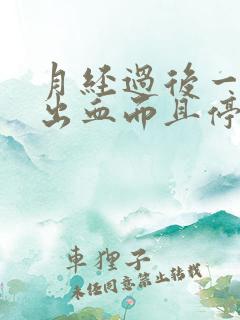 月経過後一
出血而且停
車狸子
未经同意禁止转载